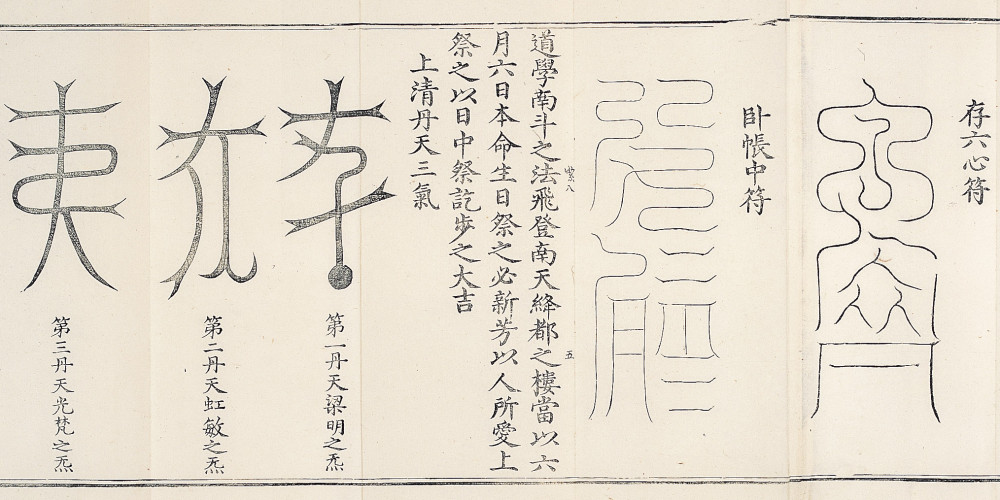 存六心符
臥帳中符
道學南斗之法飛登南天絳都之樓當以六
月六日本命生日祭之必新芳以人所愛上
祭之以日中祭訖步之大吉
上清丹天三氣
第一丹天梁明之炁
第二丹天虹敏之炁
第三丹天光梵之炁